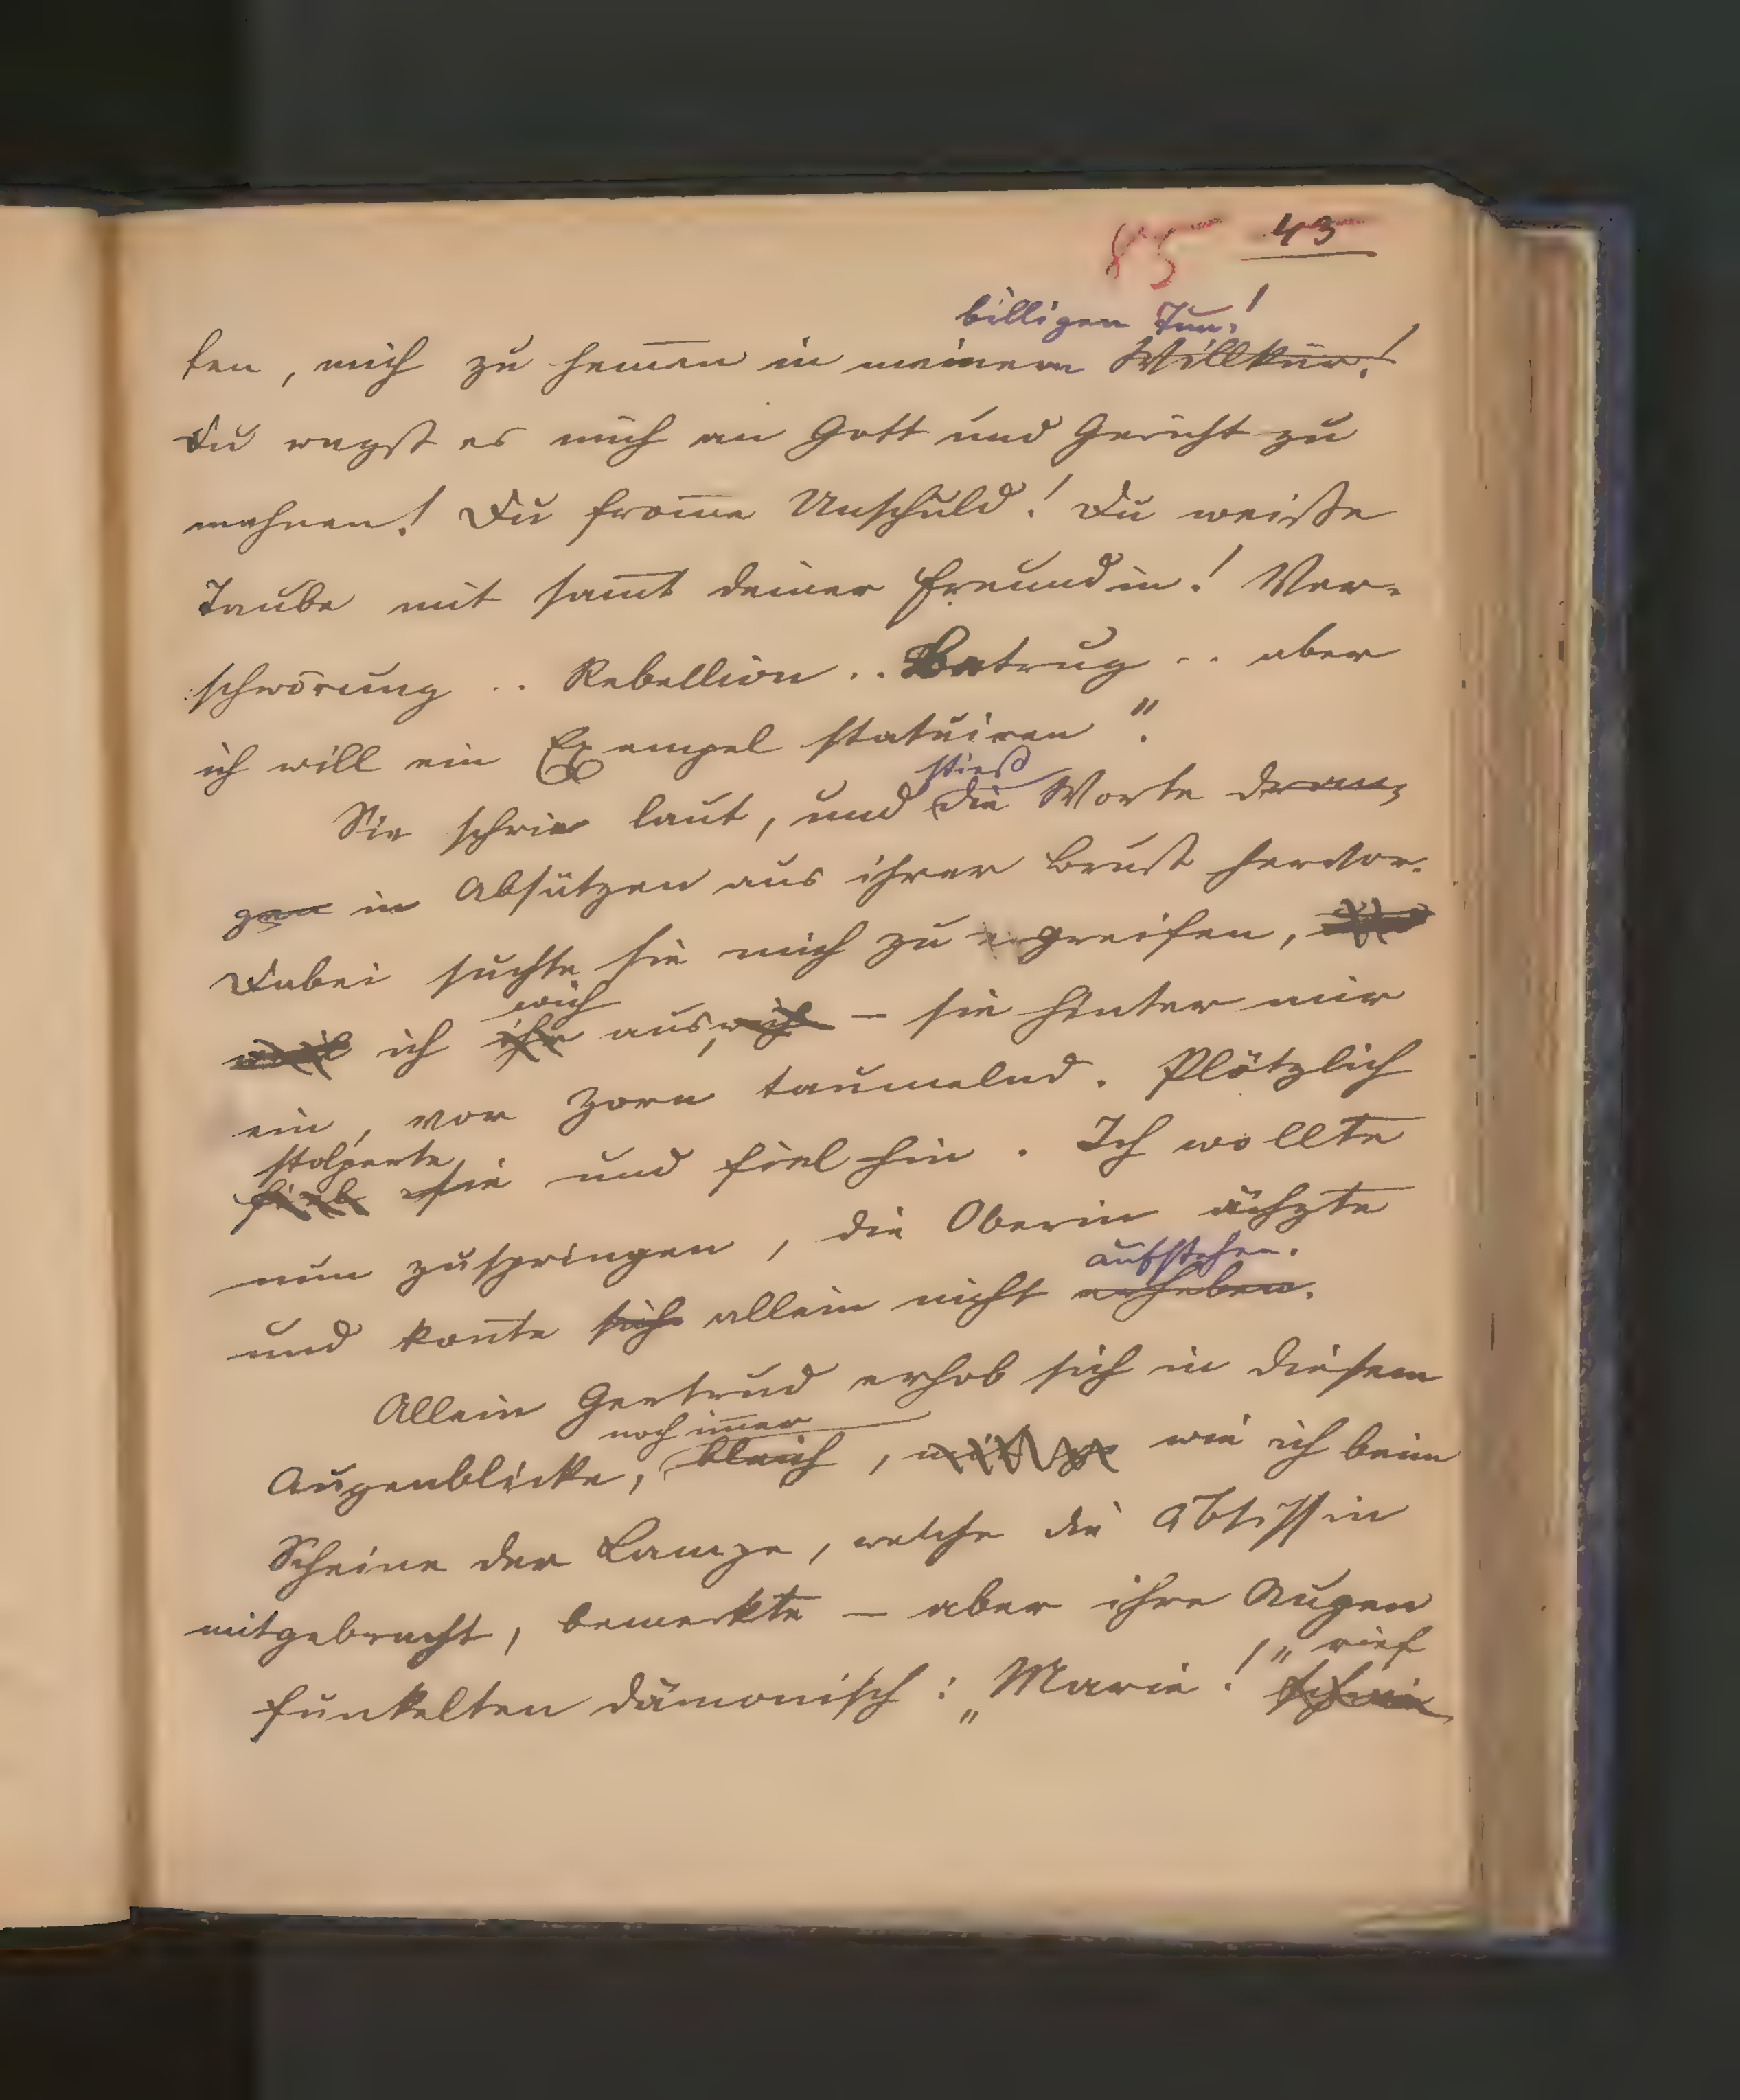 85 43
billigen Tun!
ten, mich zu hem̅en in meinem Willkür!
Du wagst es mich an Gott und Gericht zu
mahnen! Du from̅e Unschuld! Du weiße
Taube mit sam̅t deiner Freundin! Ver-
schwörung .. Rebellion .. Betrug .. aber
ich will ein Exempel statuiren".
stieß
Sie schrie laut, und die Worte dran-
gen in Absätzen aus ihrer Brust hervor.
Dabei suchte sie mich zu ergreifen,
wich
weil ich ihr auswich – sie hinter mir
ein, vor Zorn taumelnd. Plötzlich
stolperte
fiel sie und fiel hin. Ich wollte
nun zuspringen, die Oberin ächzte
aufstehen.
und kon̅te sich allein nicht erheben.
Allein Gertrud erhob sich in diesem
noch im̅er
Augenblicke, bleich, wie ich beim
Scheine der Lampe, welche die Äbtissin
mitgebracht, bemerkte – aber ihre Augen
rief
funkelten dämonisch: „Marie!" schrie